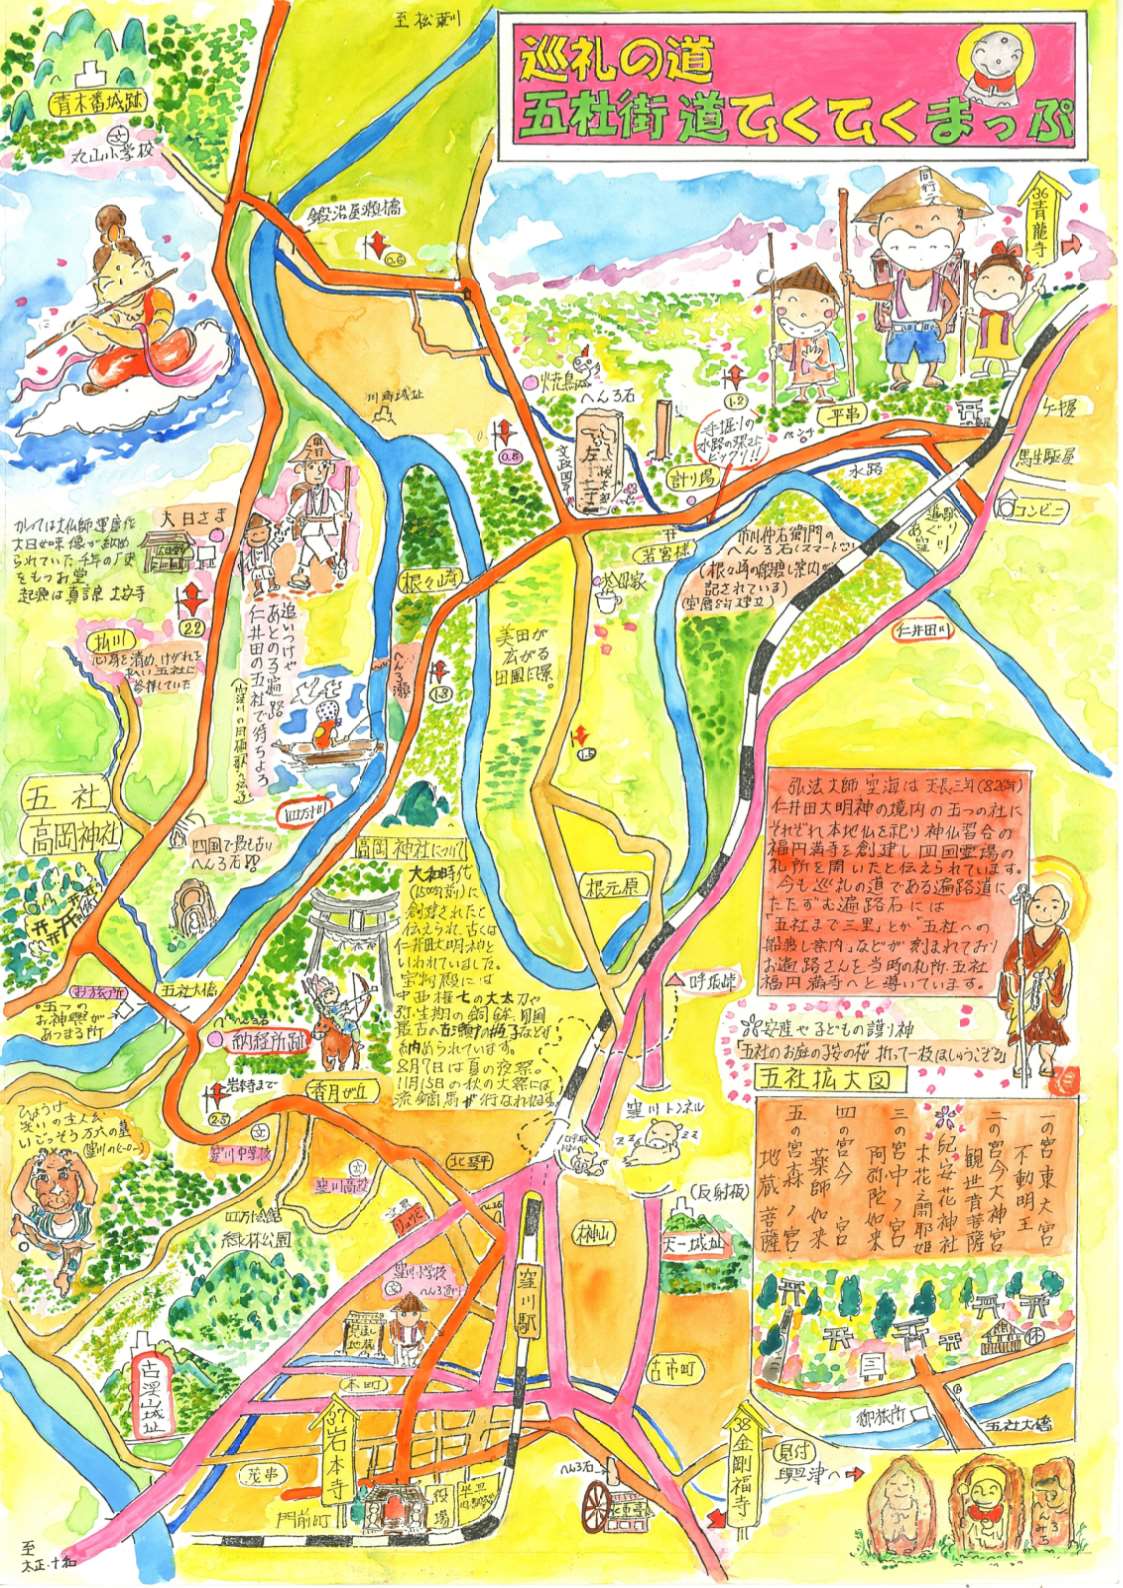 至 松葉川
巡礼の道
五社街道てくてくまっぷ
青木番城跡
文
丸山小学校
鍛治屋瀬橋
0.6
同行二人
36青龍寺
川崎城址
焼鳥
へんろ石
文政四年
左
1.2
平串
ベンチ
手掘りの
水路の深さに
ビックリ!!
計り場
水路
馬生駄屋
コンビニ
0.8
大日さま
かつては大仏師運慶作
大日如来像が納め
られていた千年の歴史
をもつお堂
2.2
根々崎
若宮様
市川仲右衛門の
へんろ石(スマート!!)
(根々崎の船渡し案内が
記されている)
仁井田川
払川
心身を清め、けがれを
はらい五社に
参拝していた
追いつけや
あとのろ遍路
仁井田の五社で待ちよる
美田が
広がる
田園風景。
へんろ瀬
1.3
1.5
四万十川
五社
高岡神社
四国で最も古い
へんろ石!!
高岡神社について
大和時代
(1500年前)に
創建されたと
伝えられ、古くは
仁井田大明神と
いわれていました。
宝物殿には
中西権七の大太刀や
弥生期の銅鉾、四国
最古の古瀬戸の瓶子などが
納められています。
8月9日は夏の夜祭。
11月15日の秋の大祭には
流鏑馬が行なわれます。
根元原
弘法大師 空海は 天長三年(826年)
仁井田大明神の境内の五つの社に
それぞれ本地仏を祀り神仏習合の
福円満寺を創建し四国霊場の
札所を開いたと伝えられています。
今も巡礼の道である遍路道に
たたずむ遍路石には
「五社まで三里」とか「五社への
船渡し案内」などが刻まれており
お遍路さんを当時の札所・五社
福円満寺へと導いています。
呼坂峠
安産や子どもの護り神
「五社のお庭の子安の桜 折って一枝ほしゅうござる」
五社拡大図
一の宮東大宮
不動明王
二の宮今大神宮
観世音菩薩
木花之開耶姫
三の宮中ノ宮
阿弥陀如来
四の宮今宮
薬師如来
五の宮森ノ宮
地蔵菩薩
御旅所
五社大橋
休
お旅所
五つの
お神輿が
あつまる所
五社大橋
へんろ石
納経所跡
岩本寺まで
2.5
香月が丘
窪川トンネル
ひょうげ
笑いの主人公
いごっそう万六の墓
窪川のヒーロー
文
窪川中学校
文
窪川高校
北琴平
四万十会館
緑林公園
(反射板)
天一城址
神山
窪川小学校
文
へんろ通り
見返し地蔵
窪川駅
古市町
古渓山城址
本町
37岩本寺
38金剛福寺
見付
興津へ
茂串
門前町
役場
へんろ石
至
大正・十和
へんろみち